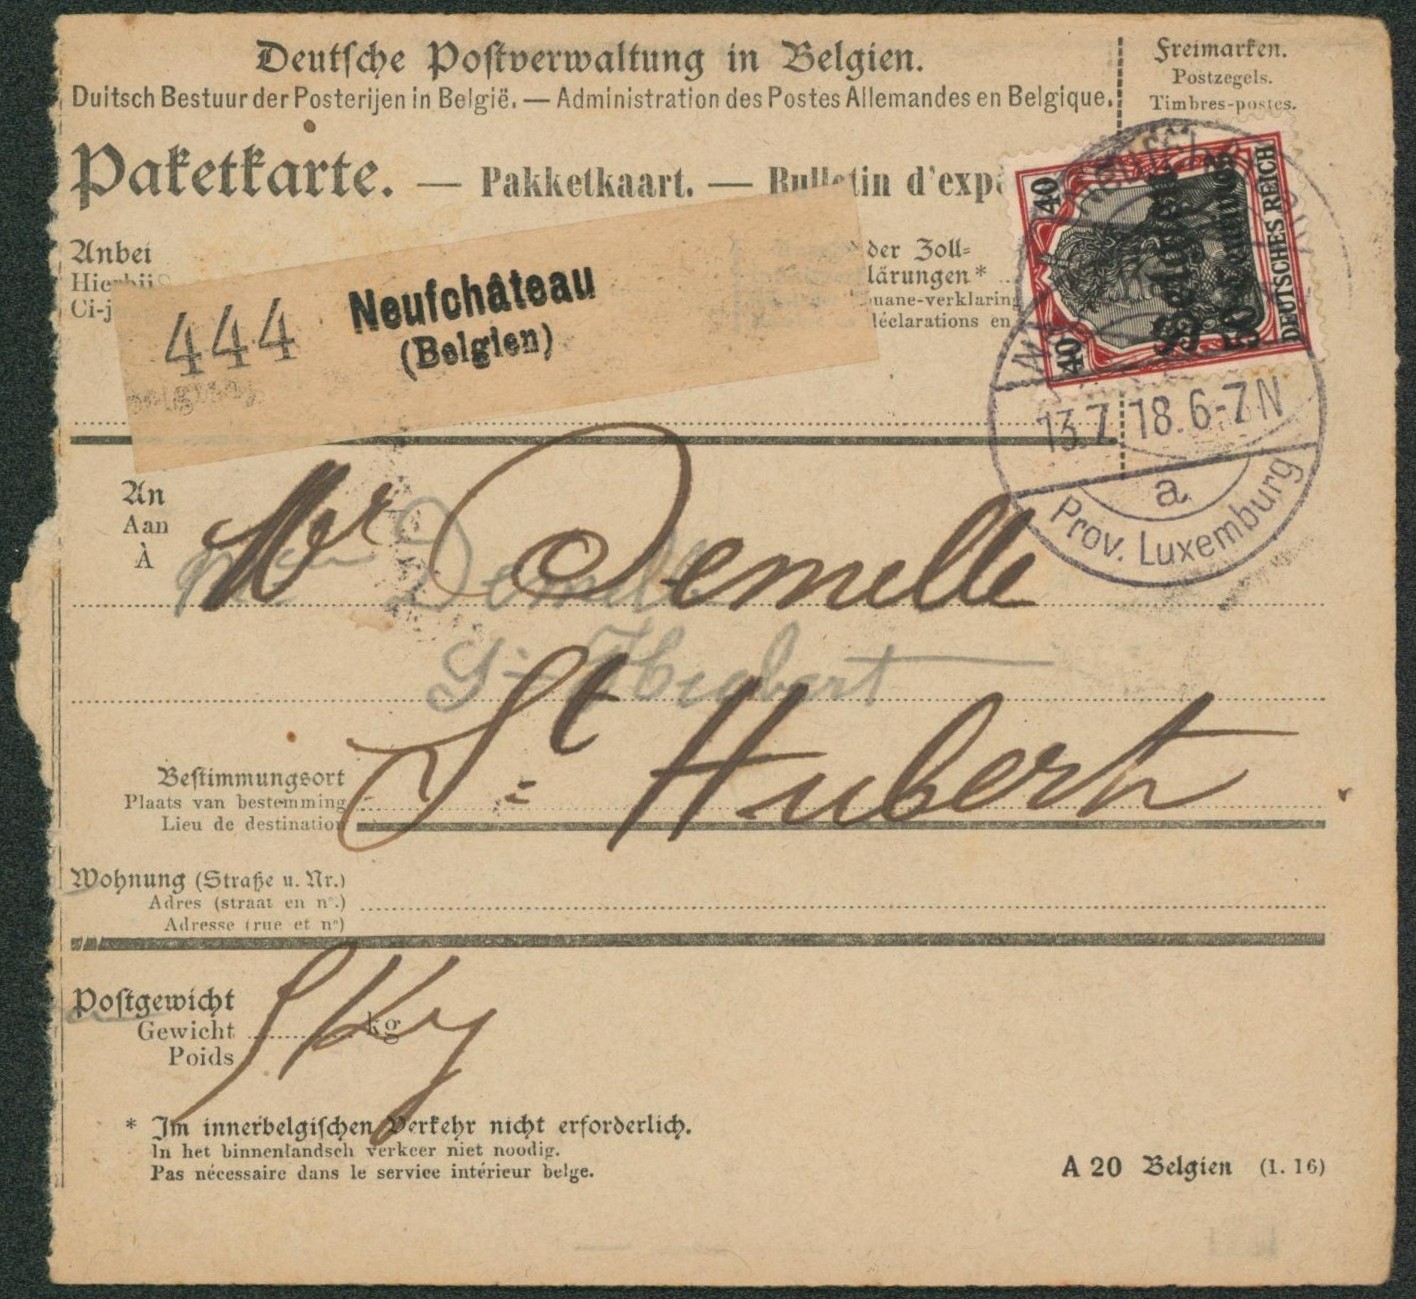 Deutsche Postverwaltung in Belgien.
Duitsch Bestuur der Posterijen in België. — Administration des Postes Allemandes en Belgique.
Freimarken.
Postzegels.
Timbres-postes.
Paketkarte. — Pakketkaart. — Bulletin d'expé
40
40
DEUTSCHES REICH
Belgien
50 Centimes
Anbei
Hierbij
Ci-j
der Zoll=
lärungen*
uane-verklaring
déclarations en
444 Neufchâteau
(Belgien)
13.7.18.6-7N
a
Prov. Luxemburg
An
Aan
À
Mr Demelle
Demelle
St Hubert
St Hubert
Bestimmungsort
Plaats van bestemming
Lieu de destination
Wohnung (Straße u. Nr.)
Adres (straat en nº.)
Adresse (rue et nº)
Postgewicht
Gewicht kg
Poids
5 Kg
* Im innerbelgischen Verkehr nicht erforderlich.
In het binnenlandsch verkeer niet noodig.
Pas nécessaire dans le service intérieur belge.
A 20 Belgien (1. 16)